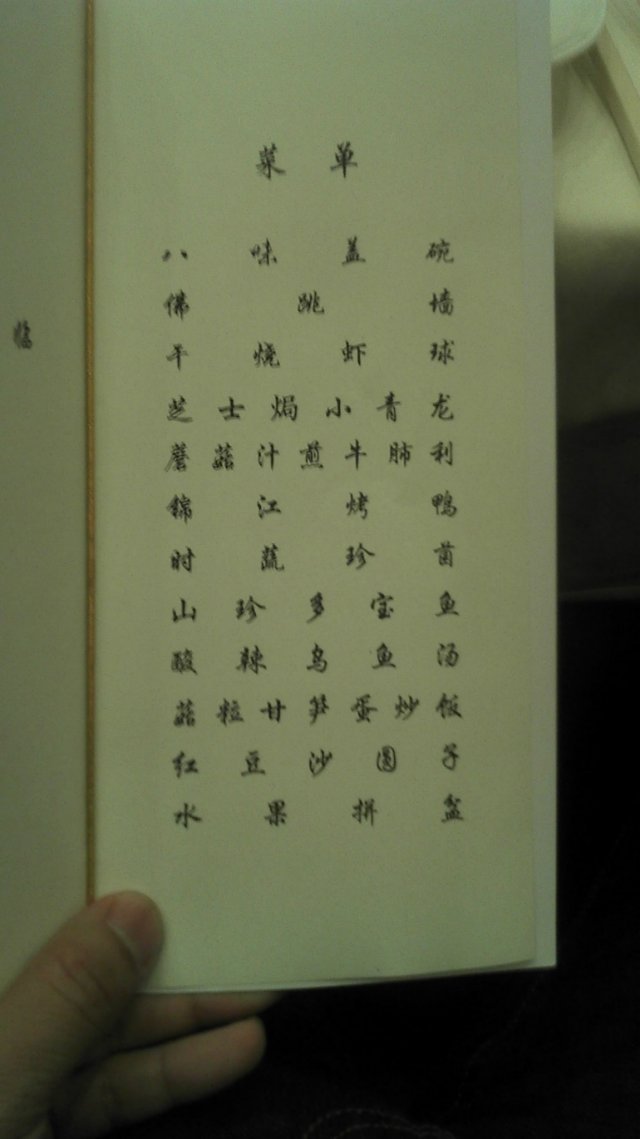 临
菜单
八味盖碗
佛跳墙
干烧虾球
芝士焗小青龙
蘑菇汁煎牛肺利
锦江烤鸭
时蔬珍菌
山珍多宝鱼
酸辣乌鱼汤
菇粒甘笋蛋炒饭
红豆沙圆子
水果拼盆